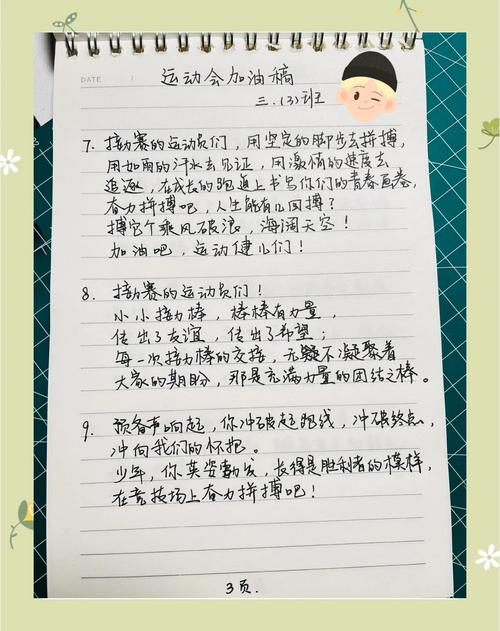 DATE
运动会加油稿
三.(3)班
7. 接力赛的运动员们，用坚定的脚步去拼搏，
用如雨的汗水去见证，用激情的速度去
追逐，在成长的跑道上书写你们的青春画卷，
奋力拼搏吧，人生能有几回搏？
搏它个乘风破浪，海阔天空！
加油吧，运动健儿们！
8. 接力赛的运动员们！
小小接力棒，棒棒有力量，
传出了友谊，传出了希望；
每一次接力棒的交接，无疑不凝聚着
大家的期盼，那是充满力量的团结之棒。
9. 预备声响起，你冲破起跑线，冲破终点，
冲向我们的怀抱。
少年，你英姿勃发，长得是胜利者的模样，
在竞技场上奋力拼搏吧！
3页.